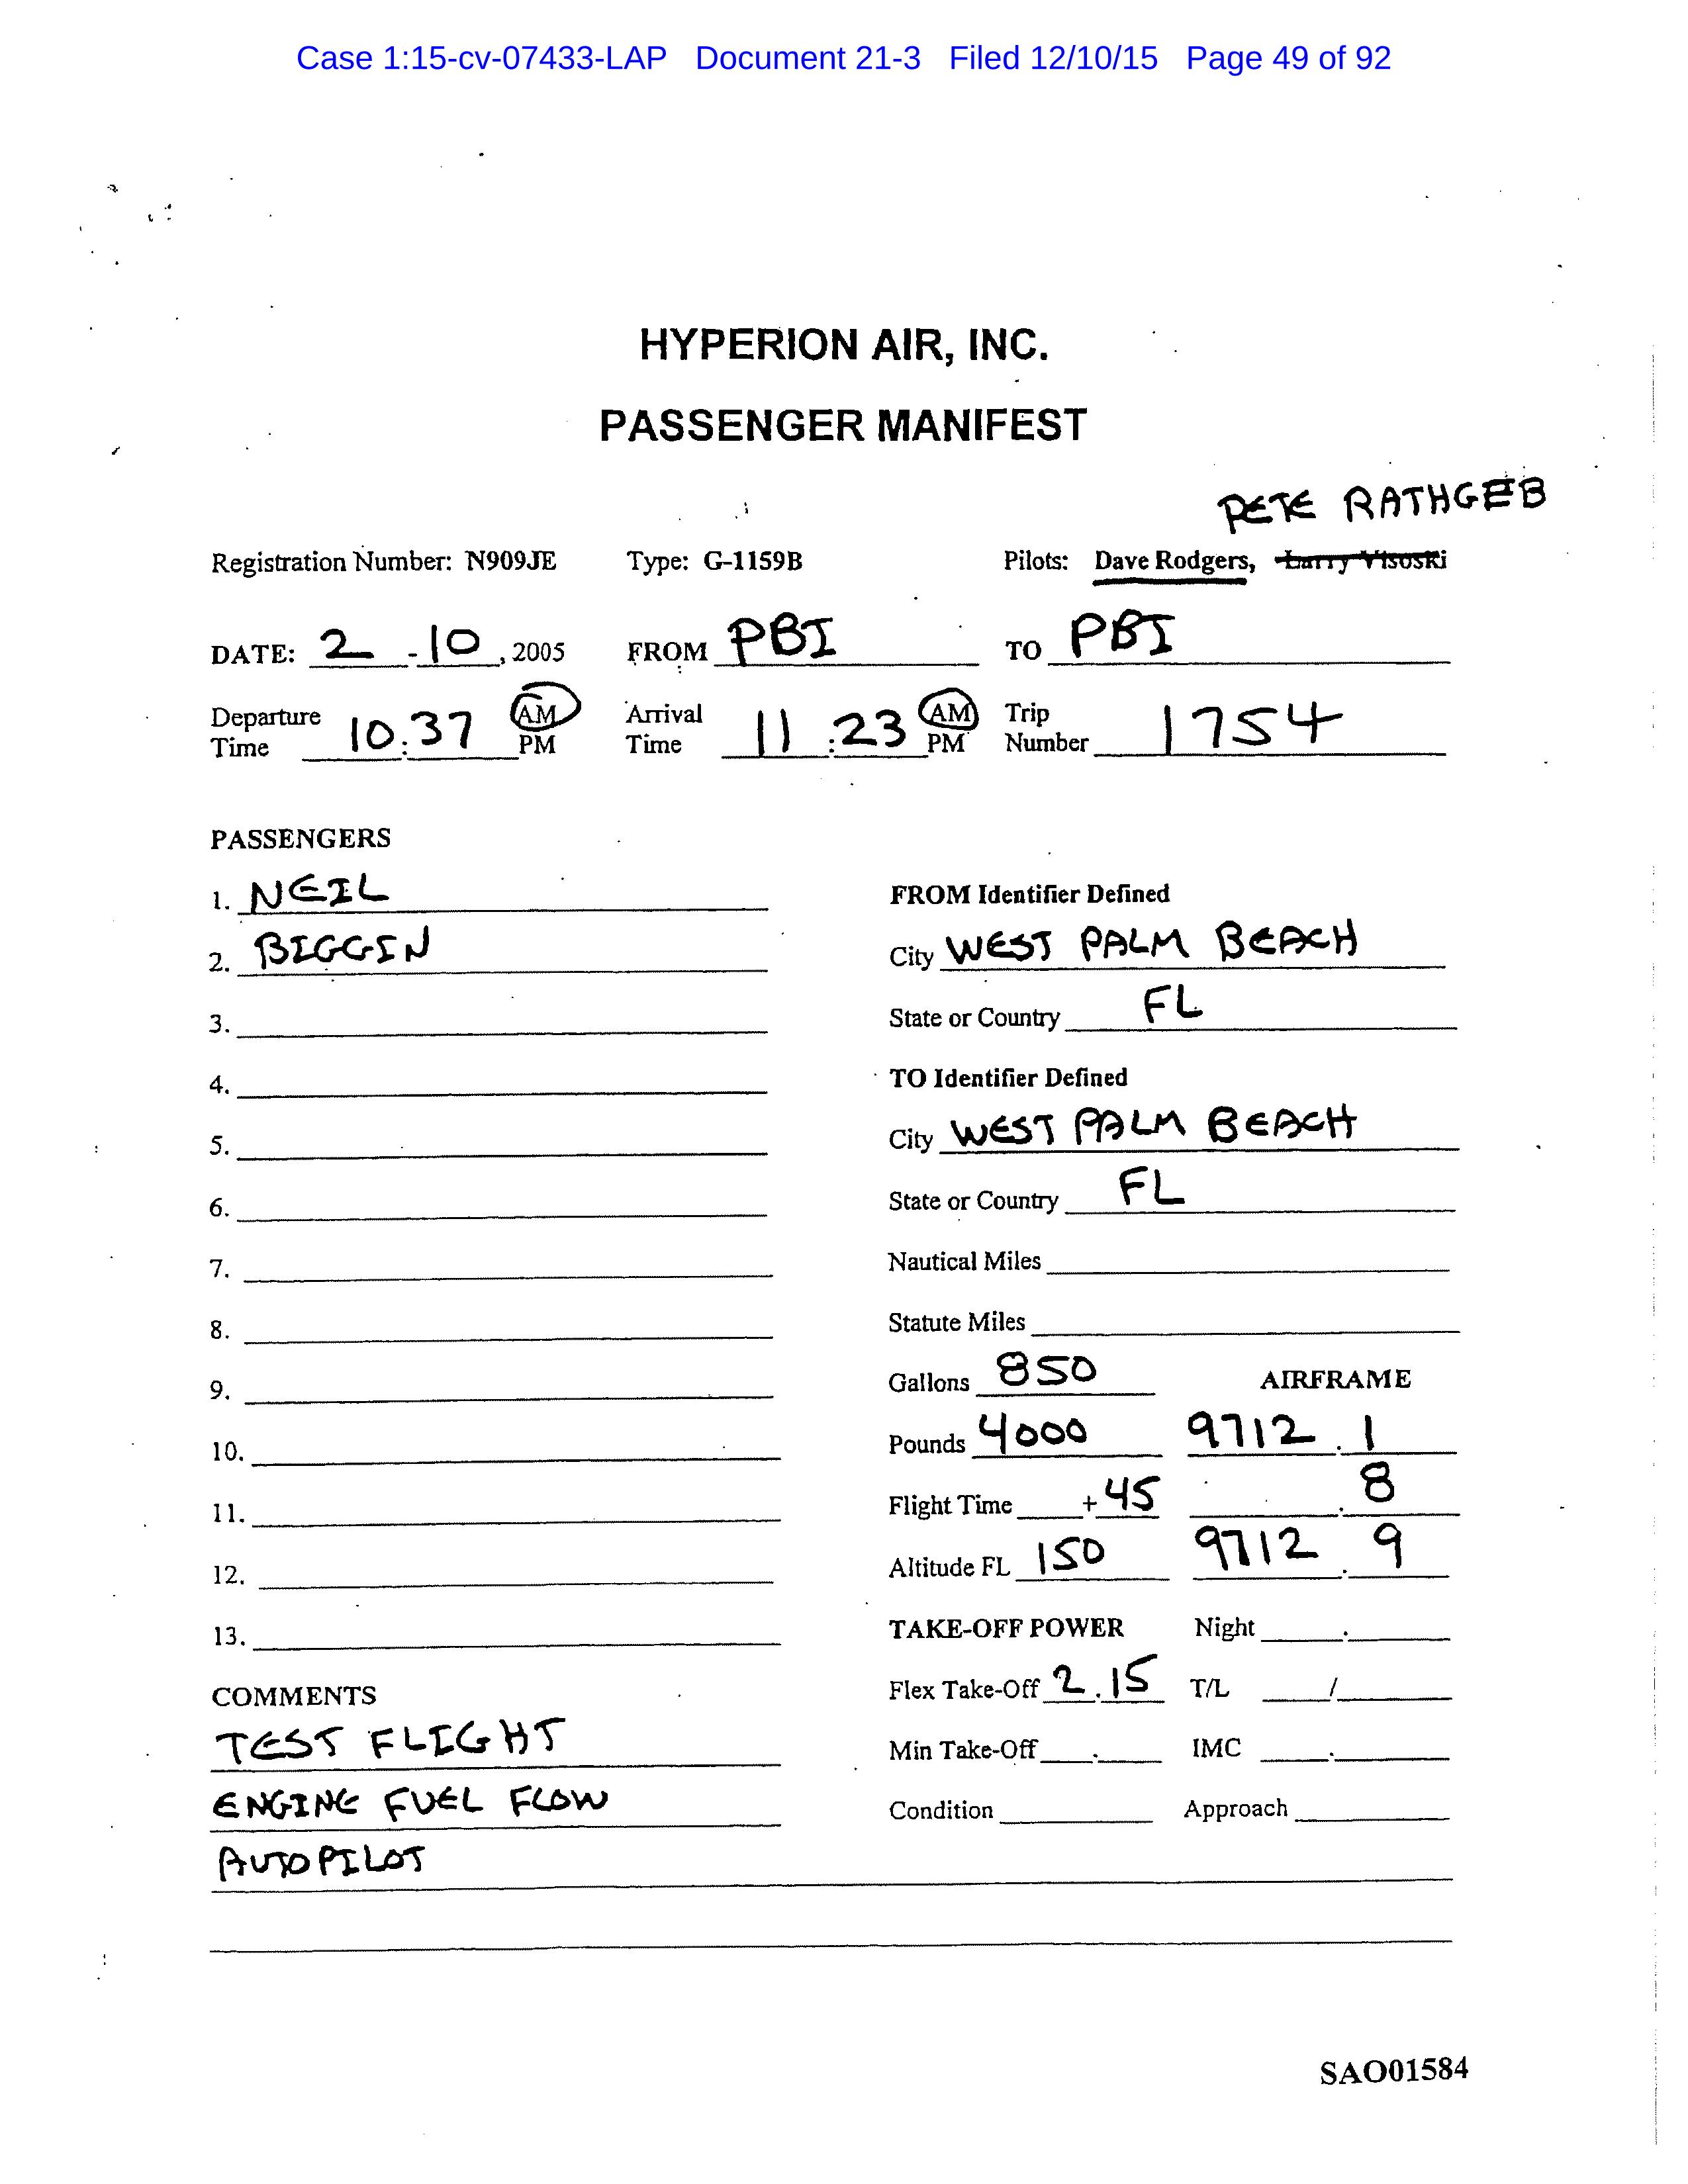 Case 1:15-cv-07433-LAP Document 21-3 Filed 12/10/15 Page 49 of 92
HYPERION AIR, INC.
PASSENGER MANIFEST
PETE RATHGEB
Registration Number: N909JE Type: G-1159B Pilots: Dave Rodgers, Larry Visoski
DATE: 2 - 10, 2005 FROM PBI TO PBI
Departure Time 10:37 AM PM Arrival Time 11:23 AM PM Trip Number 1754
PASSENGERS
1. NEIL
FROM Identifier Defined
2. BIGGIN
City WEST PALM BEACH
3.
State or Country FL
4.
TO Identifier Defined
5.
City WEST PALM BEACH
6.
State or Country FL
7.
Nautical Miles
8.
Statute Miles
9.
Gallons 850 AIRFRAME
10.
Pounds 4000 9712.1
11.
Flight Time + 45 .8
12.
Altitude FL 150 9712.9
13.
TAKE-OFF POWER Night .
COMMENTS
Flex Take-Off 2.15 T/L /
TEST FLIGHT
Min Take-Off . IMC .
ENGINE FUEL FLOW
Condition Approach
AUTOPILOT
SAO01584